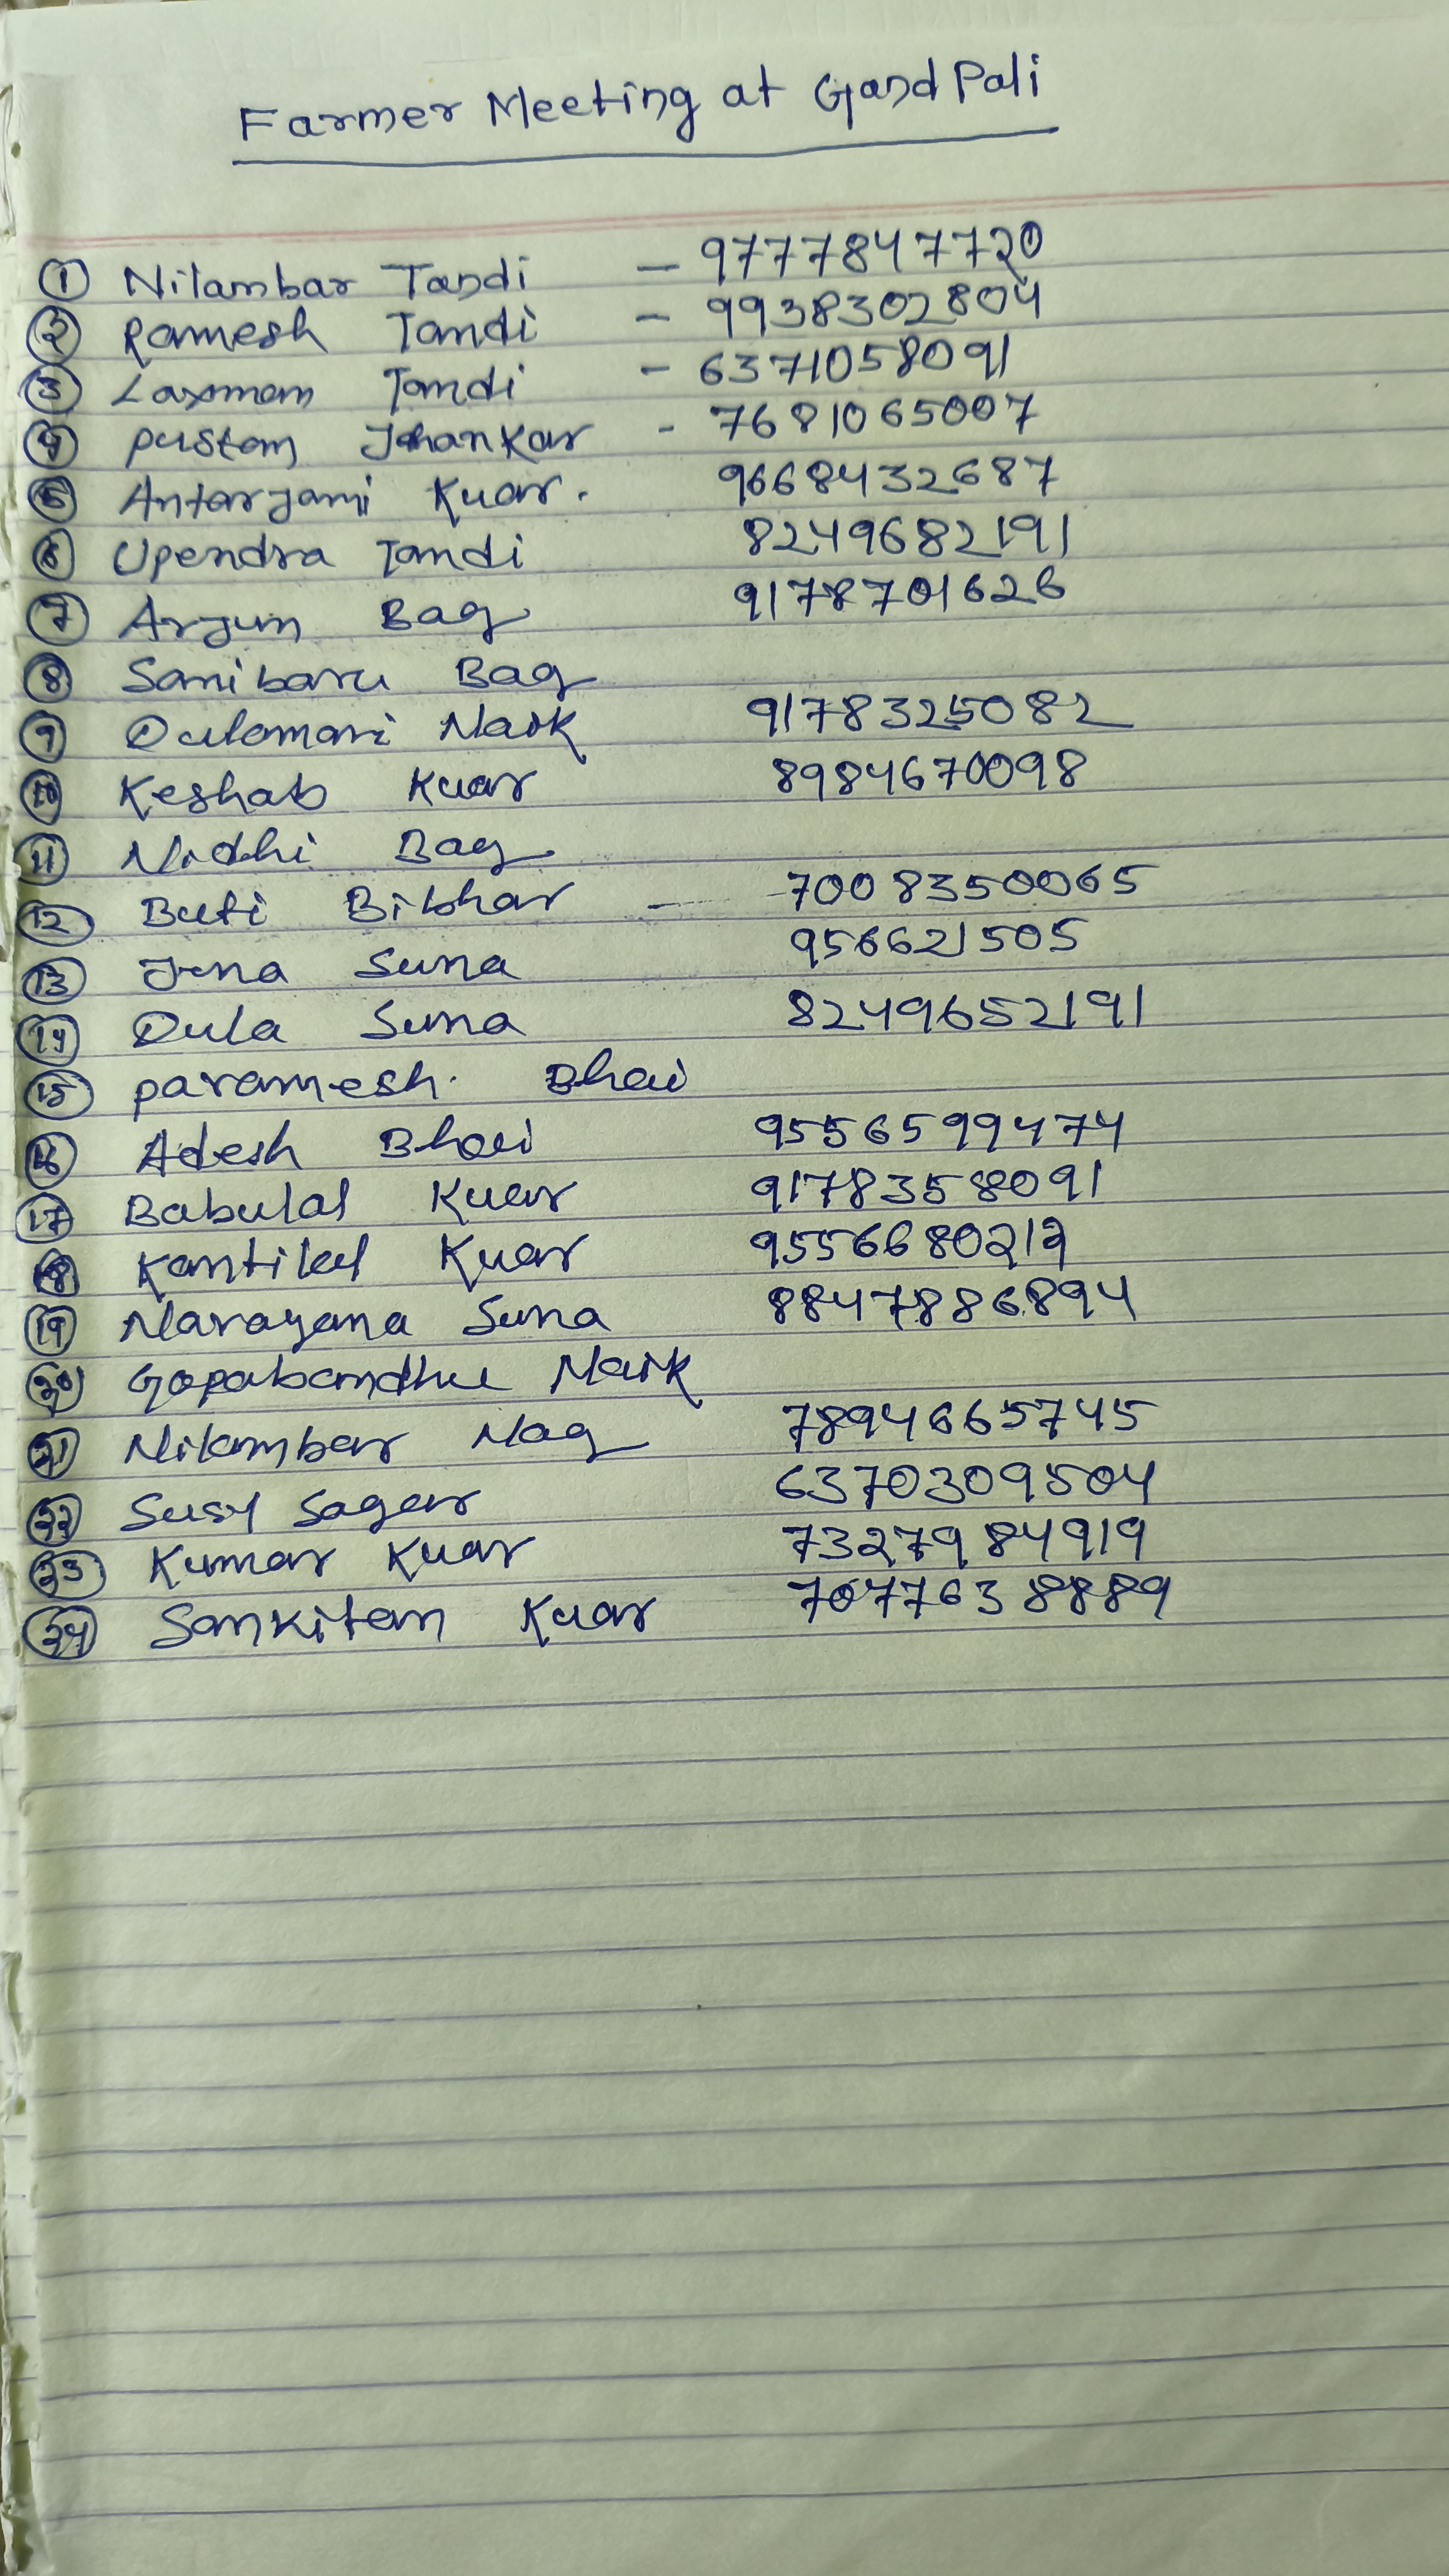 Farmer Meeting at Gand Pali
① Nilambar Tandi - 9777847720
② Ramesh Tandi - 9938302804
③ Laxman Tandi - 6371058091
④ Pustam Jhankar - 7681065007
⑤ Antarjami Kuar. 9668432687
⑥ Upendra Tandi 8249682191
⑦ Arjun Bag 9178701626
⑧ Sanibaru Bag
⑨ Dulamani Naik 9178325082
⑩ Keshab Kuar 8984670098
⑪ Nidhi Bag
⑫ Buti Bibhar - 7008350065
⑬ Jena Suna 956621505
⑭ Dula Suna 8249652191
⑮ Paramesh. Bhai
⑯ Adesh Bhoi 9556599474
⑰ Babulal Kuar 9178358091
⑱ Kantilal Kuar 9556680212
⑲ Narayana Suna 8847886894
⑳ Gopabandhu Naik
㉑ Nilambar Nag 7894665745
㉒ Susil Sagar 6370309504
㉓ Kumar Kuar 7327984919
㉔ Sankitan Kuar 7077638889